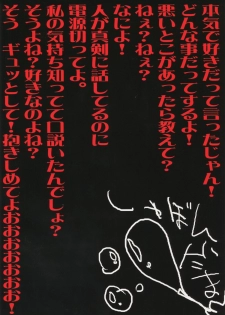 本気で好きだって言ったじゃん!
どんな事だってするよ!
悪いとこがあったら教えて?
ねぇ?ねぇ?
なによ!
人が真剣に話してるのに
電源切ってよ。
私の気持ち知ってて口説いたんでしょ?
そうよね?好きなのよね?
そう!ギュッとして!抱きしめてよおおおおおおお!